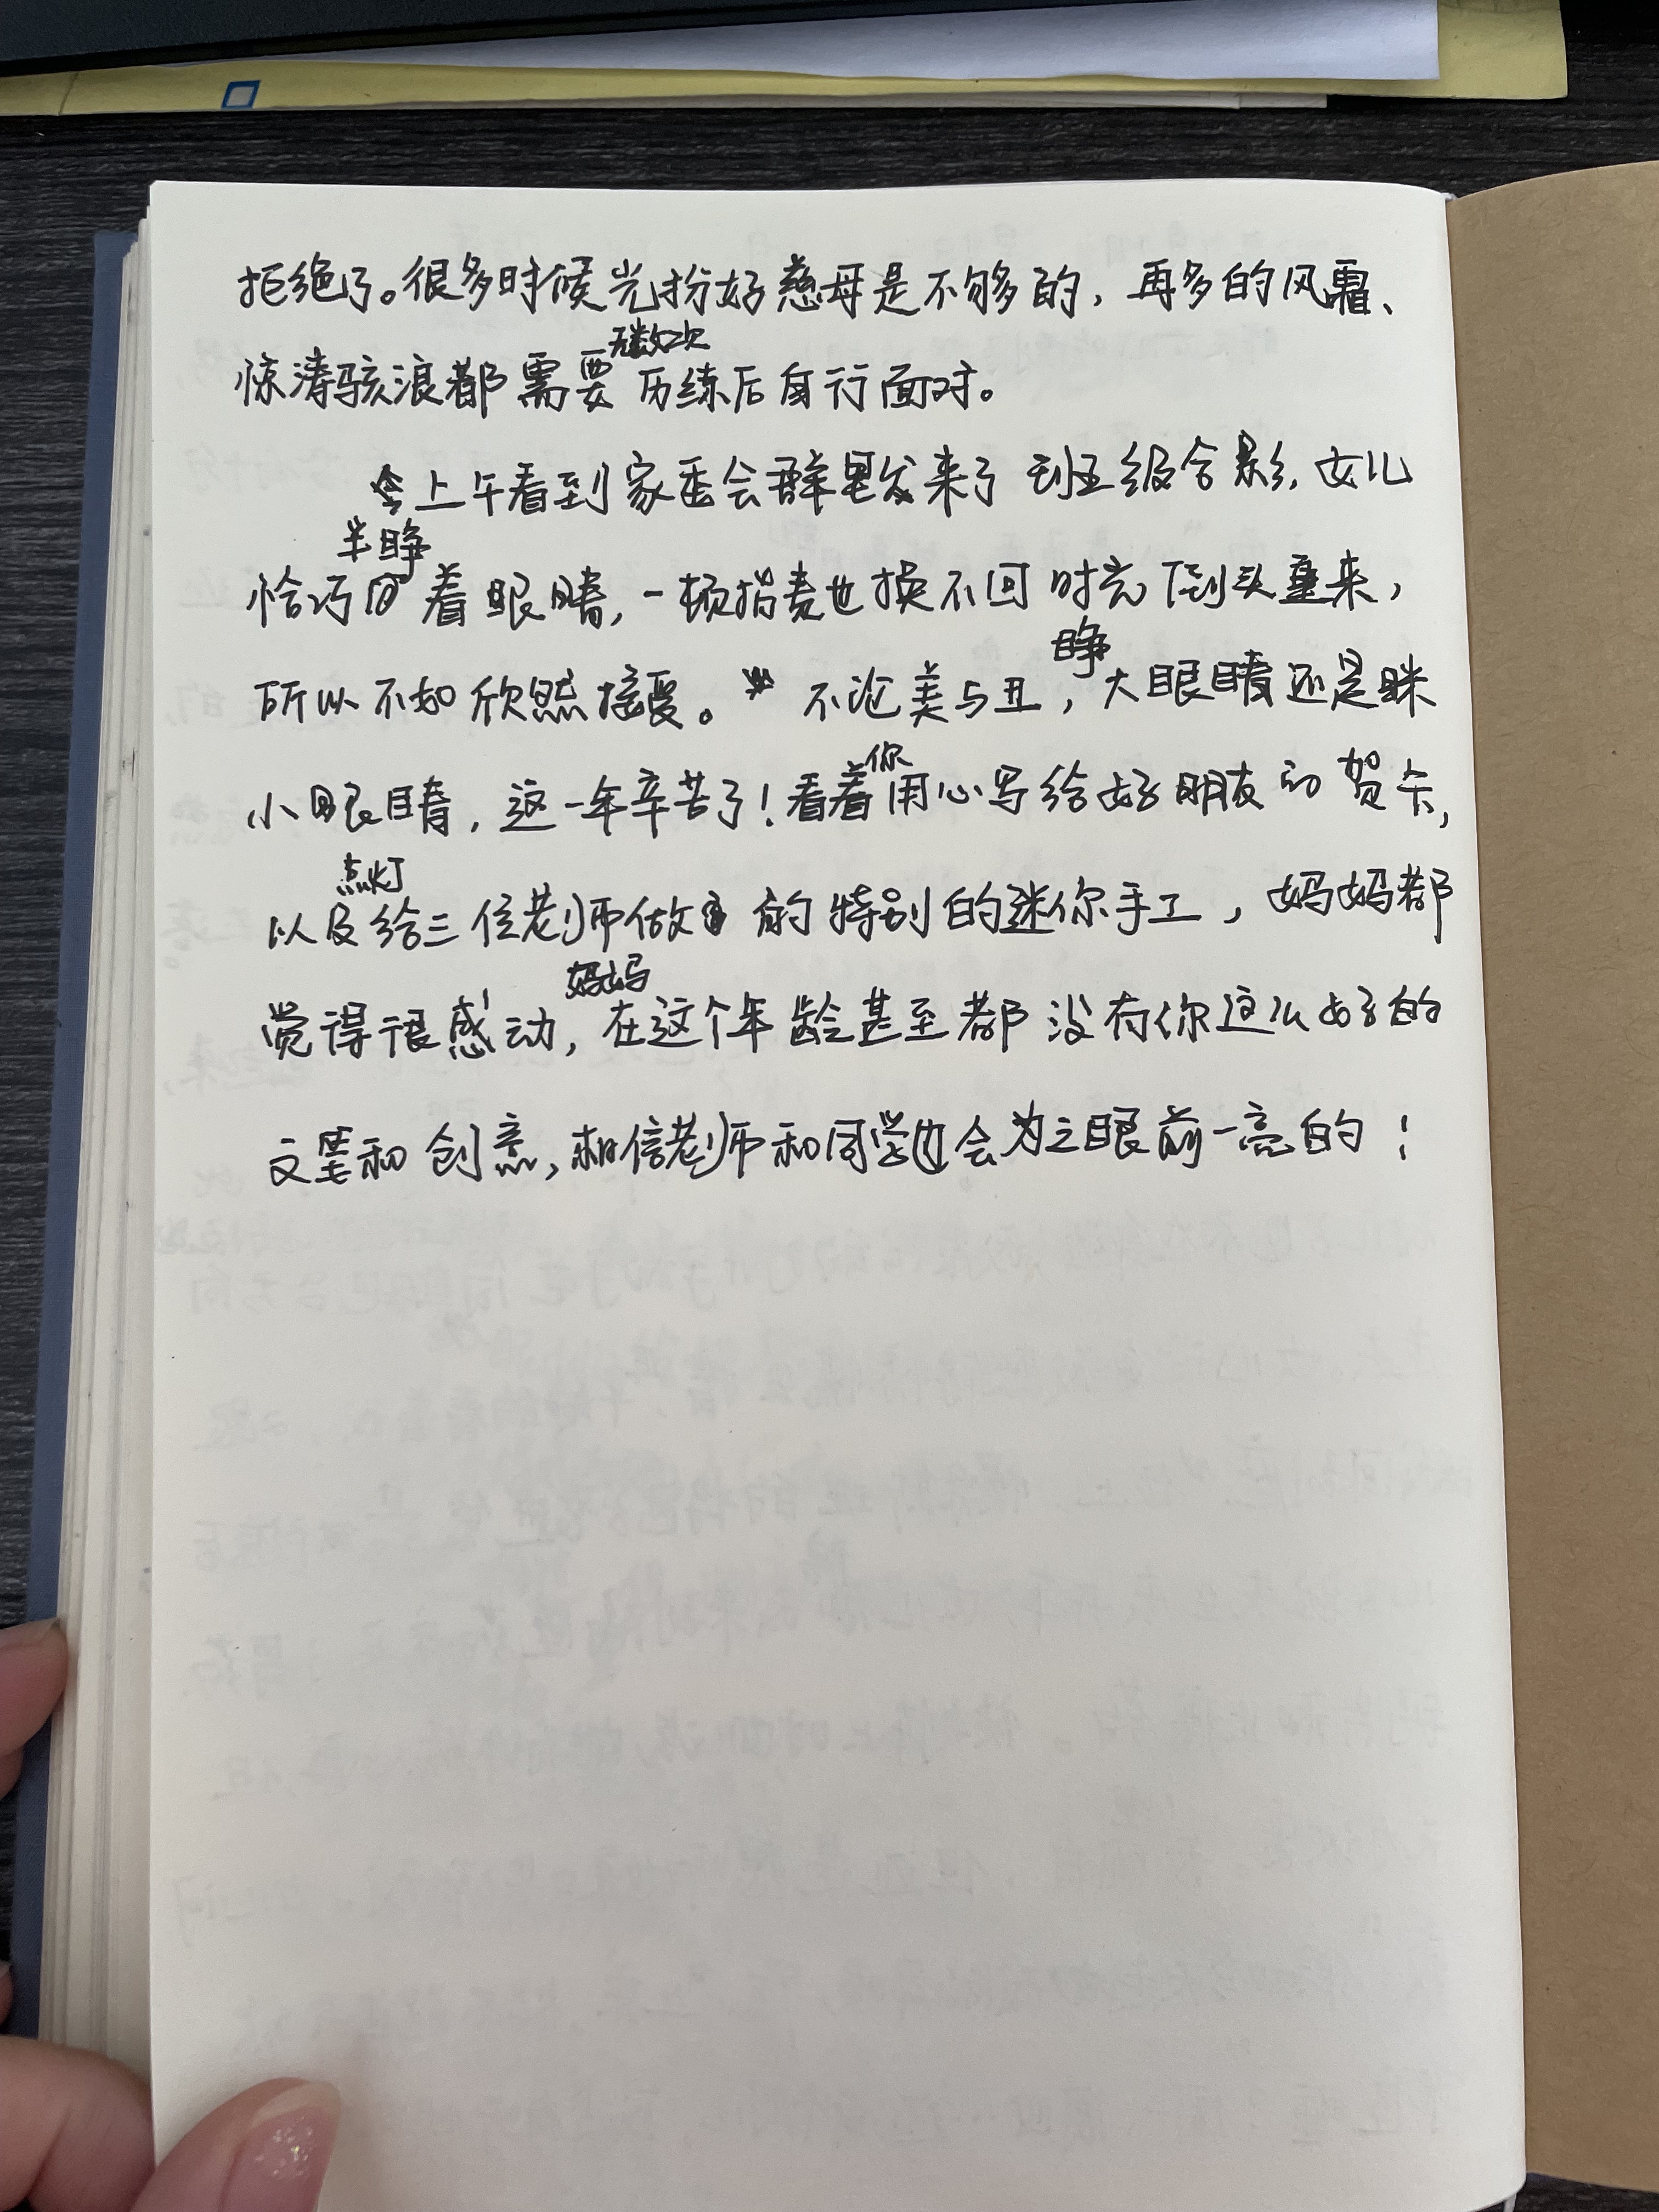 拒绝了。很多时候光扮好慈母是不够的，再多的风霜、
无数次
惊涛骇浪都需要历练后自行面对。
今上午看到家委会群里发来了班级合影，女儿
半睁
恰巧着眼睛，一顿指责也换不回时光倒头重来，
睁
所以不如欣然接受。不论美与丑，大眼睛还是眯
你
小眼睛，这一年辛苦了！看着用心写给好朋友的贺卡，
点灯
以及给三位老师做的特别的迷你手工，妈妈都
妈妈
觉得很感动，在这个年龄甚至都没有你这么好的
文笔和创意，相信老师和同学也会为之眼前一亮的！